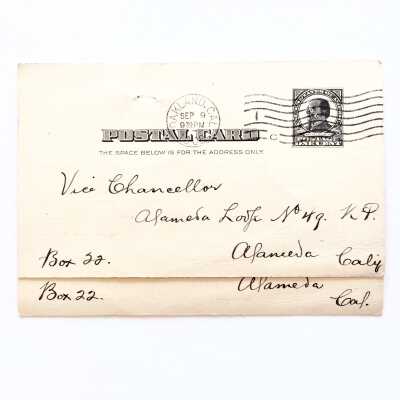 OAKLAND, CAL.
SEP 9
9 30 PM
1
C
POSTAL CARD
THE SPACE BELOW IS FOR THE ADDRESS ONLY.
ONE CENT
Vice Chancellor
Alameda Lodge No 49. K. P.
Box 22. Alameda Calif
Box 22. Alameda
Cal.